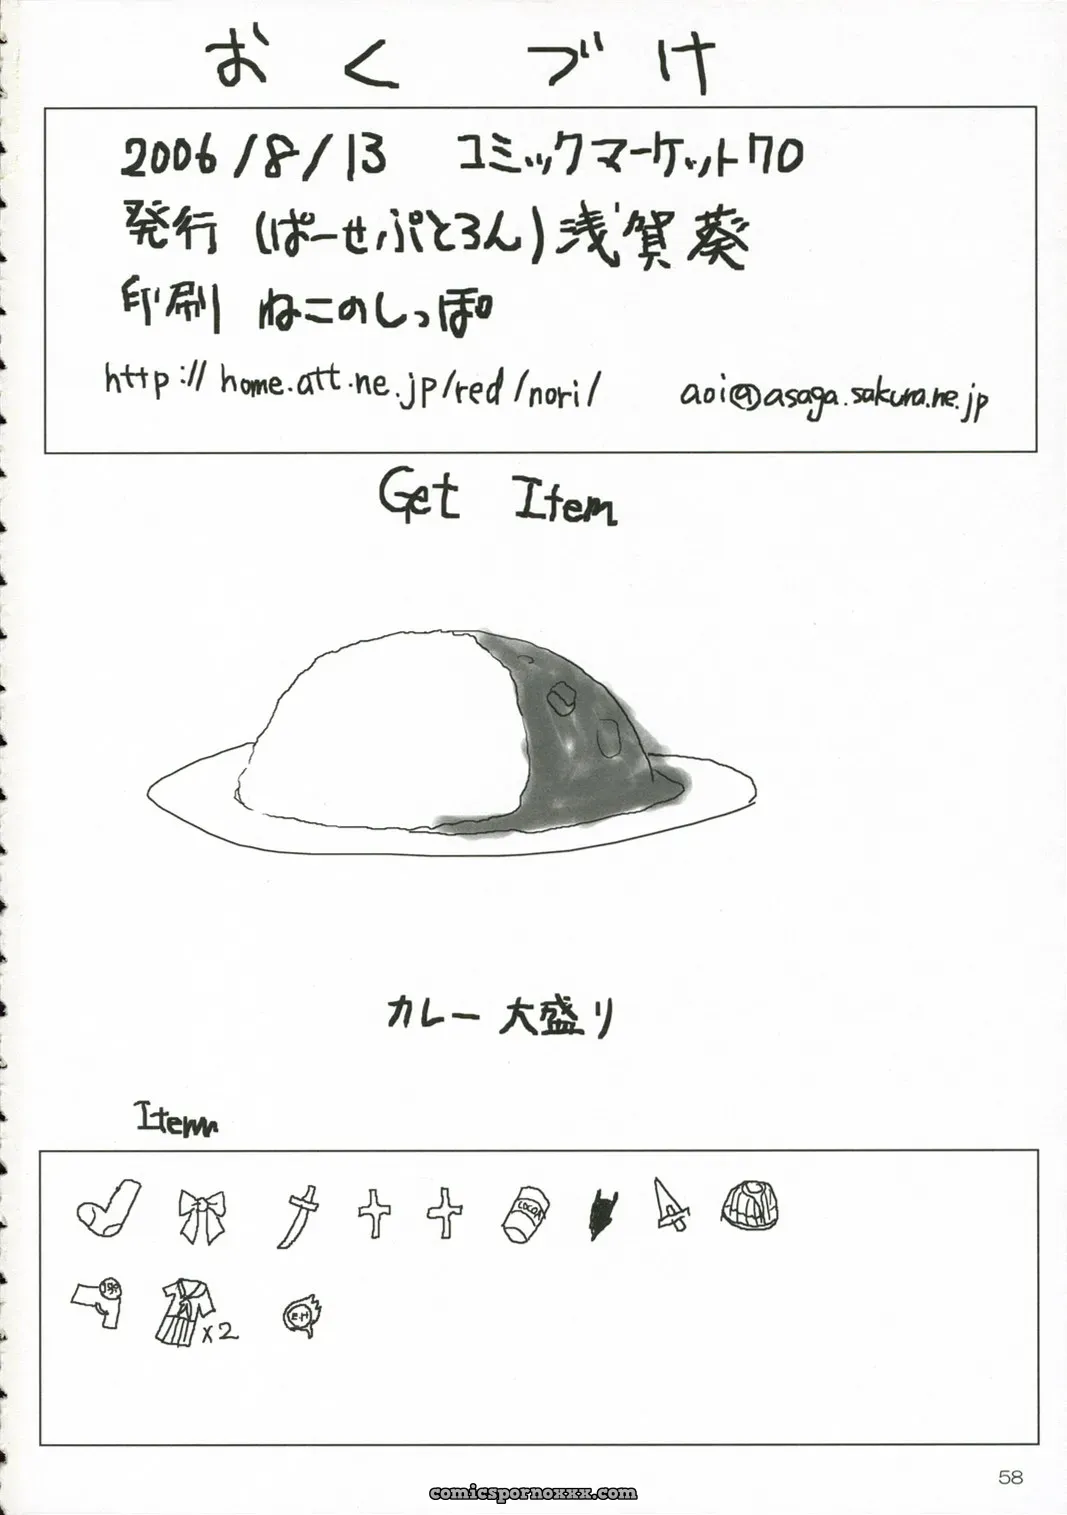 おくづけ
2006/8/13 コミックマーケット70
発行 (ぱーせぷとろん)浅賀葵
印刷 ねこのしっぽ
http://home.att.ne.jp/red/nori/ aoi@asaga.sakura.ne.jp
Get Item
カレー大盛り
Item
COCOA
x2
58
comicspornoxxx.com